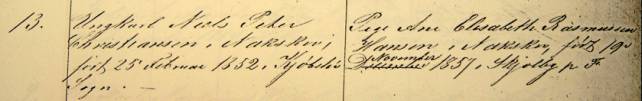 13.
Ungkarl Niels Peter
Christiansen i Nakskov,
født 25 Februar 1832 i Kjøbelev
Sogn. —
Pige Ane Elisabeth Rasmussen
Hansen i Nakskov, født 19de
November 1857 i Skjoldby p F